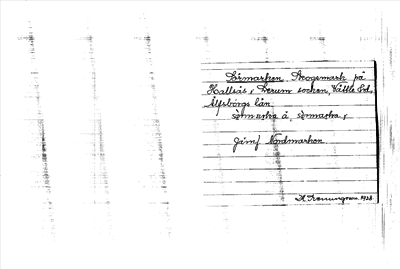 Sörmarken. Skogsmark på
Hallsås, Lerum socken, Vättle hd,
Älfsborgs län.
sørmaṣka å, sømaṣka,
Jämf Nordmarken.
1928